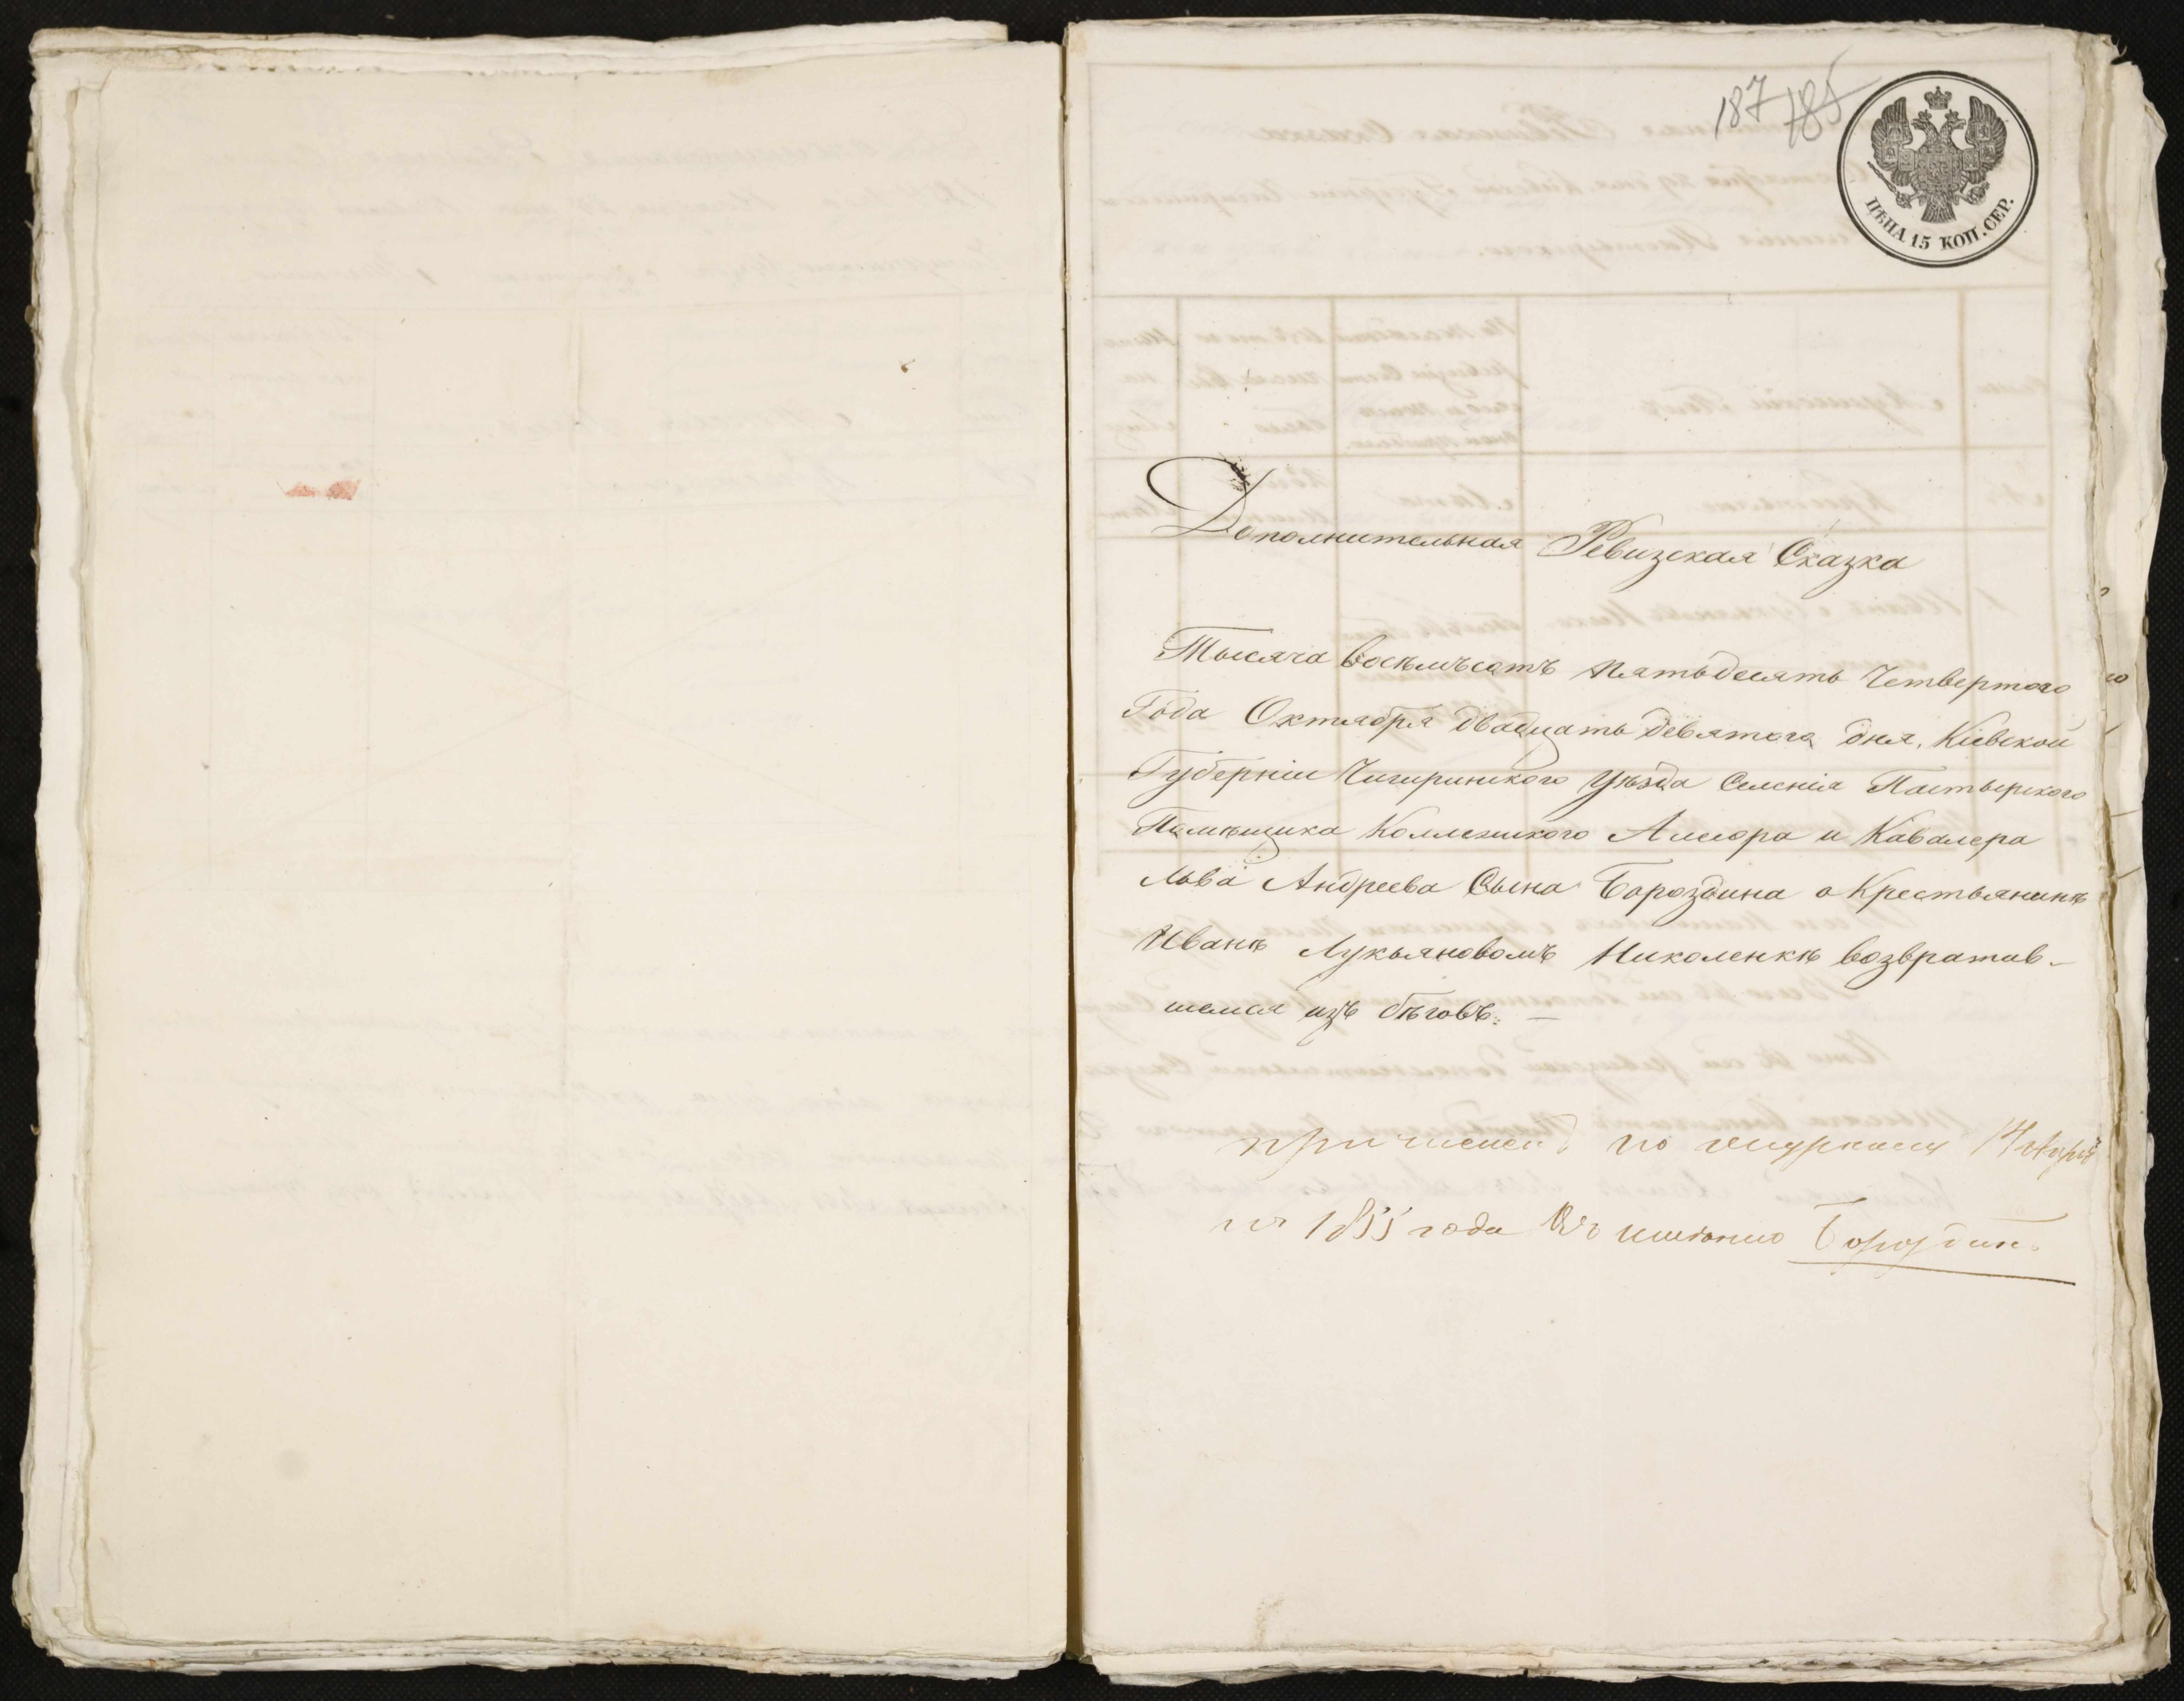 187 185
ЦѢНА 15 КОП. СЕР.
Дополнительная Ревизская Сказка
Тысяча восѣмъсотъ пятьдесятъ Четвертого
Года Октября двадцать девятого дня, Кіевской
Губерніи Чигиринского Уѣзда Селенія Пастырского
Помѣщика Коллежского Ассесора и Кавалера
Льва Андреева Сына Бороздина о Крестьянинѣ
Иванѣ Лукьяновомъ Николенкѣ возвратив-
шемся изъ бѣговъ. —
по журналу 14
1855 года имѣнію Бороздин.